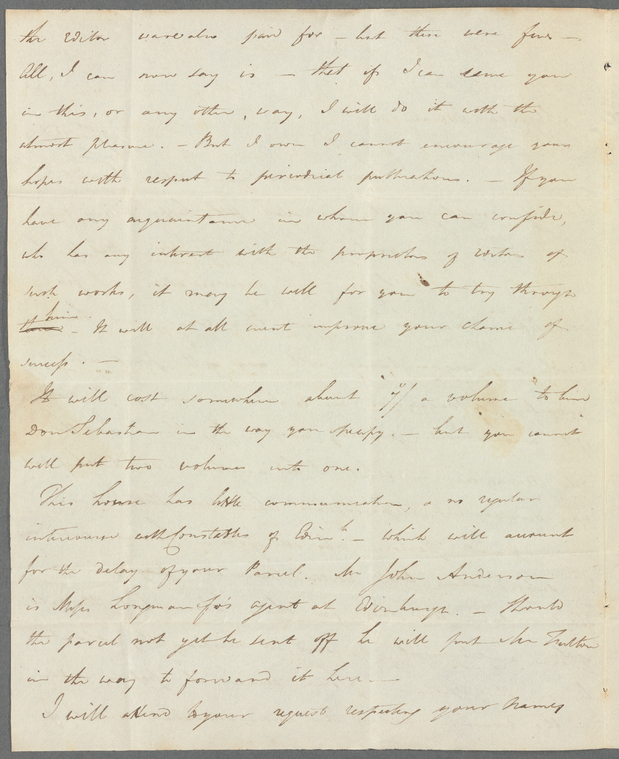 the Editor were also paid for – but these were few –
All, I can now say is – that if I can serve you
in this, or any other, way, I will do it with the
utmost pleasure. – But I own I cannot encourage your
hopes with respect to periodical publications. – If you
have any acquaintance in whom you can confide,
who has any interest with the proprietors of Editors of
such works, it may be well for you to try through
him. – It will at all event improve your chance of
success. –
It will cost somewhere about a volume to bind
Don Sebastian in the way you specify. – but you cannot
well put two volumes into one.
This house has little communication, or no regular
intercourse with Constables of Edinh. – which will account
for the delay of your Parcel. Mr John Anderson
is Messrs Longman & Co's agent at Edinburgh. – Should
the parcel not yet be sent off he will put Mr
in the way to forward it here. –
I will attend to your request respecting your names